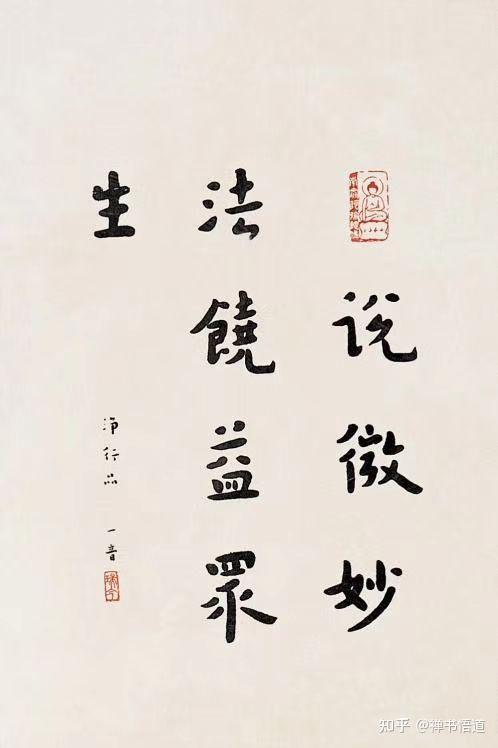 説微妙
法饒益眾
生
淨行品 一音
知乎 @禅书悟道